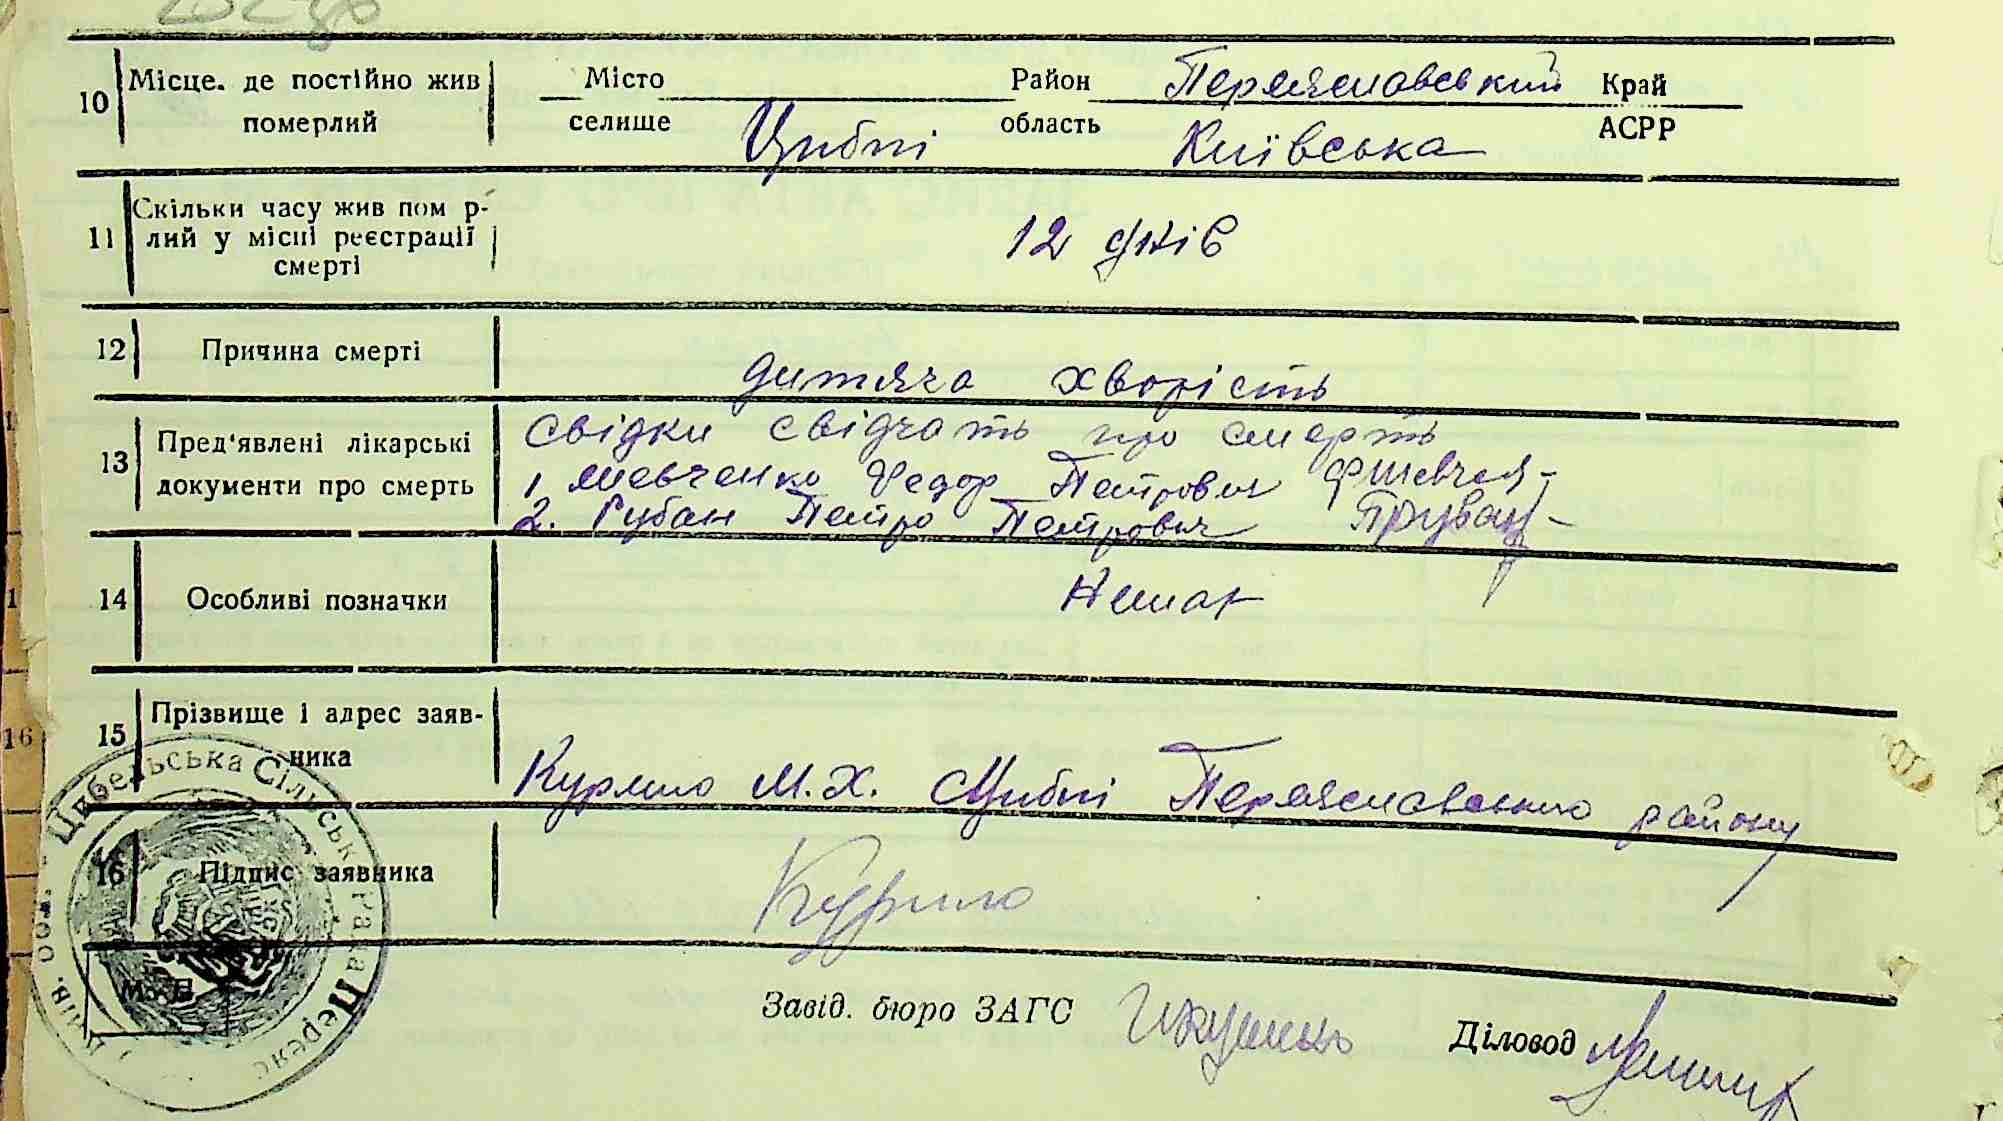 10 Місце. де постійно жив Місто Район Переяславський Край
померлий селище Цибпі область Київська АСРР
11 Скільки часу жив пом р-
лий у місці реєстрації 12 днів
смерті
12 Причина смерті дитяча хворість
13 Пред'явлені лікарські свідки свідчать про смерть
документи про смерть 1. Шевченко Федор Петрович ФШевчен-
2. Рубан Петро Петрович ПРубан-
14 Особливі позначки Немає
15 Прізвище і адрес заяв-
ника Курило М.Х. с Цибпі Переяславського району
16 Підпис заявника Курило
Цибельська Сільська Рада Переяс
М. П.
Завід. бюро ЗАГС Діловод